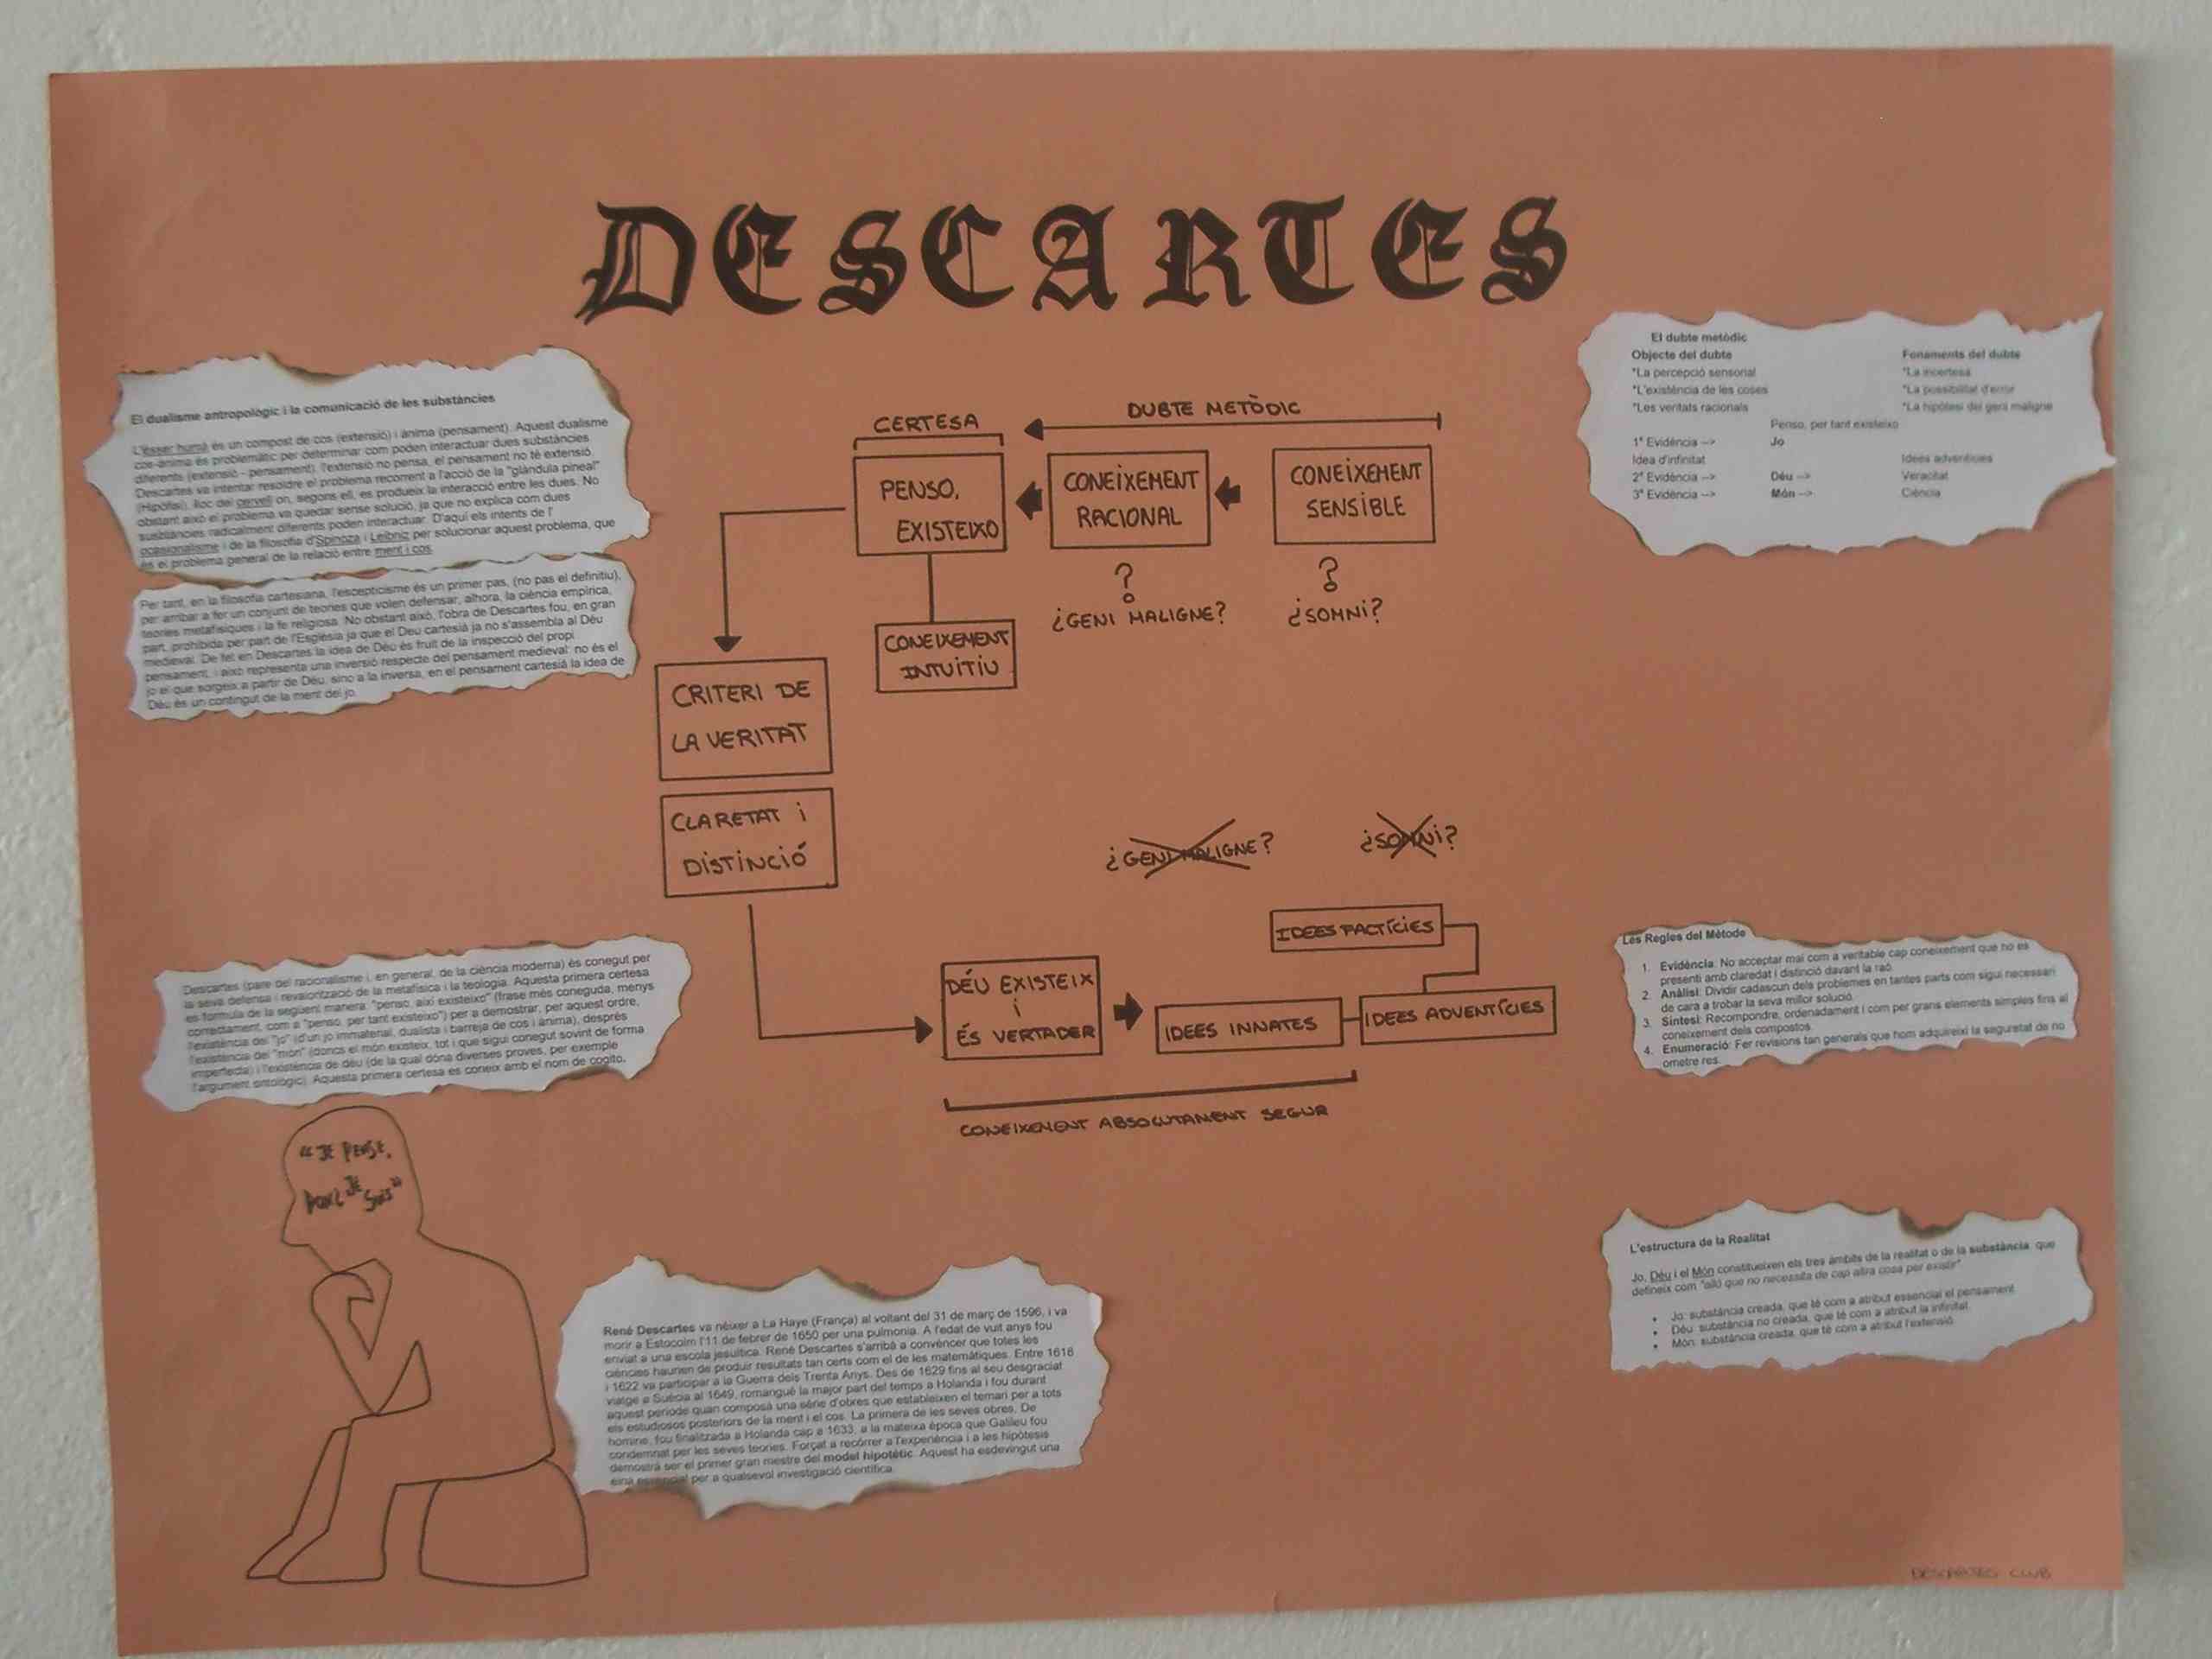 DESCARTES
El dualisme antropològic i la comunicació de les substàncies
L'ésser humà és un compost de cos (extensió) i ànima (pensament). Aquest dualisme
cos-ànima és problemàtic per determinar com poden interactuar dues substàncies
diferents (extensió - pensament), l'extensió no pensa, el pensament no té extensió.
Descartes va intentar resoldre el problema recorrent a l'acció de la "glàndula pineal"
(Hipòfisi), lloc del cervell on, segons ell, es produeix la interacció entre les dues. No
obstant això el problema va quedar sense solució, ja que no explica com dues
susbtàncies radicalment diferents poden interactuar. D'aquí els intents de l'
ocasionalisme i de la filosofia d'Spinoza i Leibniz per solucionar aquest problema, que
és el problema general de la relació entre ment i cos.
Per tant, en la filosofia cartesiana, l'escepticisme és un primer pas, (no pas el definitiu),
per arribar a fer un conjunt de teories que volen defensar, alhora, la ciència empírica,
teories metafísiques i la fe religiosa. No obstant això, l'obra de Descartes fou, en gran
part, prohibida per part de l'Església ja que el Deu cartesià ja no s'assembla al Déu
medieval. De fet en Descartes la idea de Déu és fruit de la inspecció del propi
pensament, i això representa una inversió respecte del pensament medieval: no és el
jo el que sorgeix a partir de Déu, sino a la inversa, en el pensament cartesià la idea de
Déu és un contingut de la ment del jo.
CERTESA
DUBTE METÒDIC
PENSO,
EXISTEIXO
CONEIXEMENT
RACIONAL
CONEIXEMENT
SENSIBLE
?
¿GENI MALIGNE?
?
¿SOMNI?
CONEIXEMENT
INTUITIU
CRITERI DE
LA VERITAT
CLARETAT i
DISTINCIÓ
¿GENI MALIGNE?
¿SOMNI?
IDEES FACTÍCIES
DÉU EXISTEIX
i
ÉS VERTADER
IDEES INNATES
IDEES ADVENTÍCIES
CONEIXEMENT ABSOLUTAMENT SEGUR
El dubte metòdic
Objecte del dubte Fonaments del dubte
*La percepció sensorial *La incertesa
*L'existència de les coses *La possibilitat d'error
*Les veritats racionals *La hipòtesi del geni maligne
Penso, per tant existeixo
1ª Evidència --> Jo
Idea d'infinitat Idees adventícies
2ª Evidència --> Déu --> Veracitat
3ª Evidència --> Món --> Ciència
Les Regles del Mètode
1. Evidència: No acceptar mai com a veritable cap coneixement que no es
presenti amb claredat i distinció davant la raó.
2. Anàlisi: Dividir cadascun dels problemes en tantes parts com sigui necessari
de cara a trobar la seva millor solució.
3. Síntesi: Recompondre, ordenadament i com per grans elements simples fins al
coneixement dels compostos.
4. Enumeració: Fer revisions tan generals que hom adquireixi la seguretat de no
ometre res.
L'estructura de la Realitat
Jo, Déu i el Món constitueixen els tres àmbits de la realitat o de la substància, que
defineix com "allò que no necessita de cap altra cosa per existir"
• Jo: substància creada, que té com a atribut essencial el pensament.
• Déu: substància no creada, que té com a atribut la infinitat.
• Món: substància creada, que té com a atribut l'extensió.
Descartes (pare del racionalisme i, en general, de la ciència moderna) és conegut per
la seva defensa i revaloritzacó de la metafísica i la teologia. Aquesta primera certesa
es formula de la següent manera: "penso, així existeixo" (frase més coneguda, menys
correctament, com a "penso, per tant existeixo") per a demostrar, per aquest ordre,
l'existència del "jo" (d'un jo immaterial, dualista i barreja de cos i ànima), després
l'existència del "món" (doncs el món existeix, tot i que sigui conegut sovint de forma
imperfecta) i l'existència de déu (de la qual dóna diverses proves, per exemple
l'argument ontològic). Aquesta primera certesa es coneix amb el nom de cogito.
"JE PENSE,
DONC JE SUIS"
René Descartes va néixer a La Haye (França) al voltant del 31 de març de 1596, i va
morir a Estocolm l'11 de febrer de 1650 per una pulmonia. A l'edat de vuit anys fou
enviat a una escola jesuítica. René Descartes s'arribà a convèncer que totes les
ciències haurien de produir resultats tan certs com el de les matemàtiques. Entre 1618
i 1622 va participar a la Guerra dels Trenta Anys. Des de 1629 fins al seu desgraciat
viatge a Suècia al 1649, romangué la major part del temps a Holanda i fou durant
aquest període quan composà una sèrie d'obres que estableixen el temari per a tots
els estudiosos posteriors de la ment i el cos. La primera de les seves obres, De
homine, fou finalitzada a Holanda cap a 1633, a la mateixa època que Galileu fou
condemnat per les seves teories. Forçat a recórrer a l'experiència i a les hipòtesis
demostrà ser el primer gran mestre del model hipotètic. Aquest ha esdevingut una
eina essencial per a qualsevol investigació científica.
DESCARTES CLUB